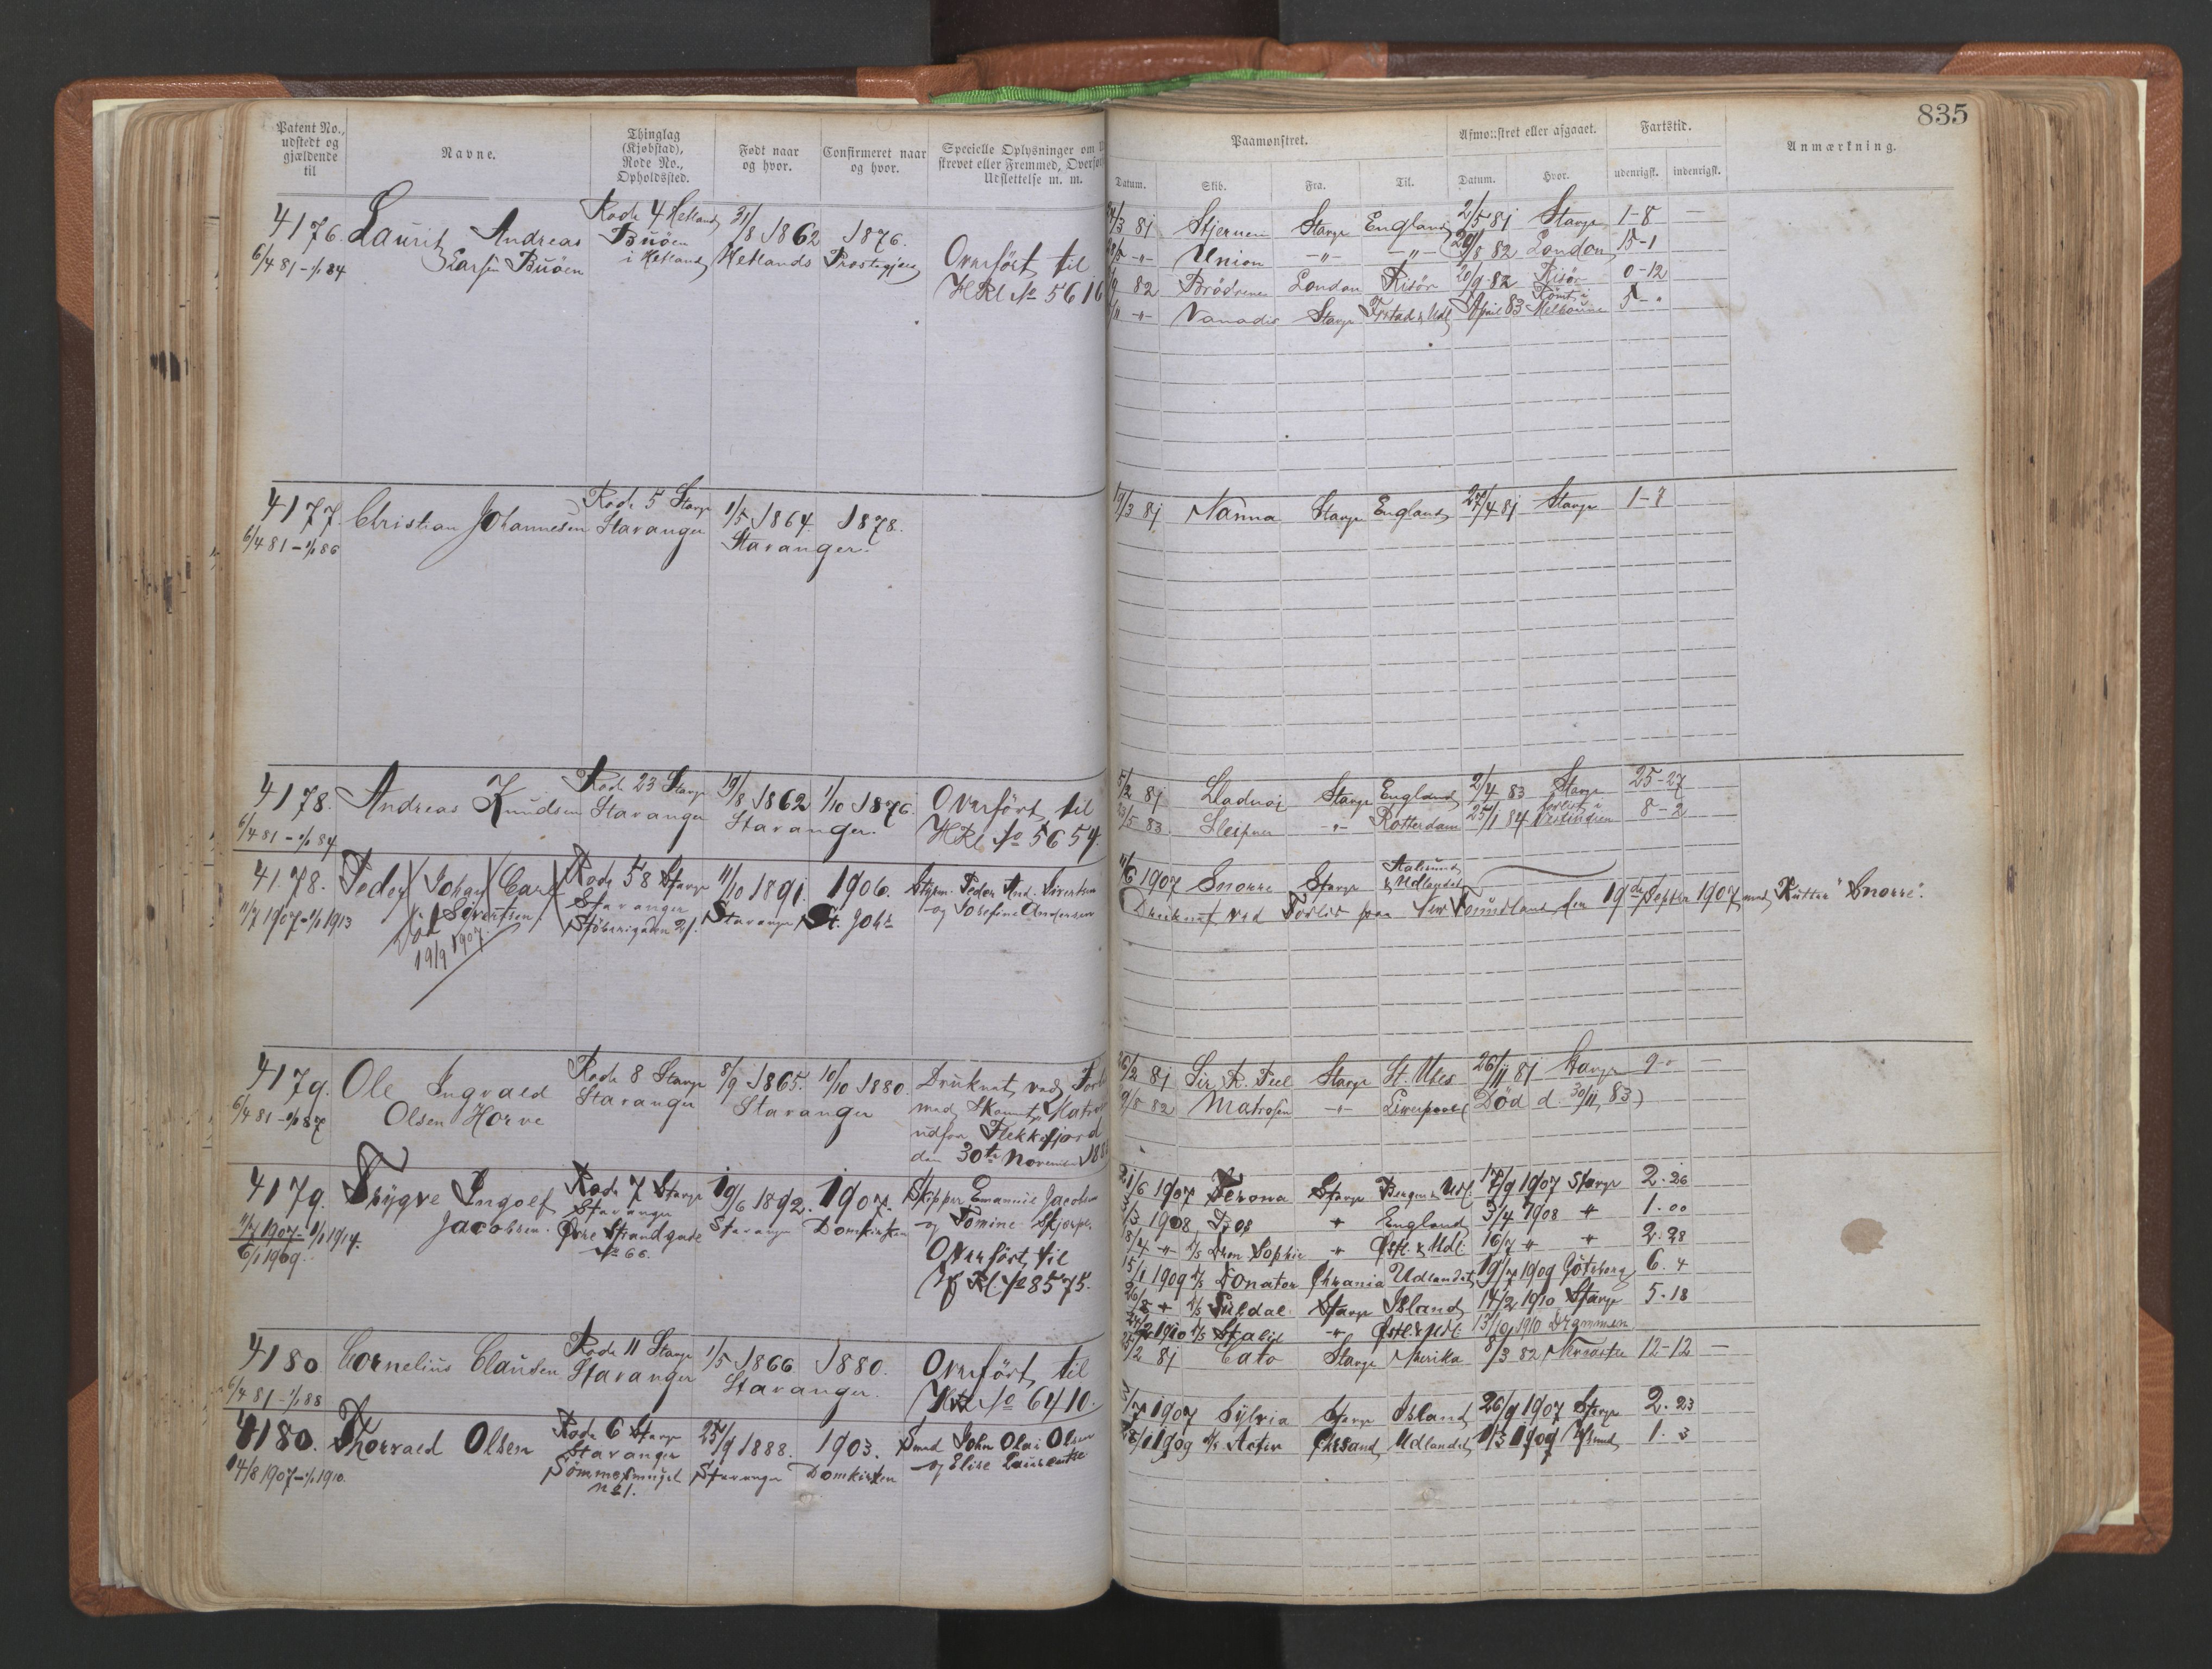 835
Patent No., udstedt og gjældende til
Navne.
Thinglag (Kjøbstad), Rode No., Opholdssted.
Født naar og hvor.
Confirmeret naar og hvor.
Specielle Oplysninger om
strevet eller Fremmed, Overfør
Udslettelse m. m.
Paamønstret.
Afmønstret eller afgaaet.
Fartstid.
Anmærkning.
Datum. Skib. Fra. Til. Datum. Hvor. udenrigsk. indenrigsk.
4176. Laurits Andreas Rode 4 Hetland 31/8 1862 1876.
6/4 81 - 1/1 84 Larsen Buöen Buöen i Hetland Hetlands Overført til
HRl No 5616
81 Stjernen Stavgr England 2/5 81 Stavgr 1-8 —
-"- Union -"- -"- 82 London 15-1
82 Brödrene London Risör 20/9 82 Risör 0-12
-"- Vanadis Stavgr April 83 Römt i Melbourne 5-"
4177. Christian Johannesen Rode 5 Stavgr 1/5 1864. 1878.
6/4 81 - 1/1 86 Stavanger Stavanger.
19/3 81 Nanna Stavgr England 27/4 81 Stavgr 1-7
4178. Andreas Knudsen Rode 23 Stavgr 19/8 1862 1/10 1876. Overført til
6/4 81 - 1/1 84 Stavanger Stavanger. HRl No 5654.
5/2 81 Stavgr England 2/4 83 Stavgr 25-27
/5 83 Sleipner -"- Rotterdam 25/1 84 forlist i Vestindien 8-2
4178. Peder Johan Carl Rode 58 Stavgr 11/10 1891. 1906. Styrm. Peder And. Sivertsen
11/7 1907 - 1/1 1913 Sivertsen. Stavanger Stavanger St. Johs og Josefine Andersen
Død 19/9 1907. Støberigaden 21.
11/6 1907 Snorre Stavgr Aalesund & Udlandet
Druknet ved Forlis paa New Foundland den 19de Septbr 1907 med Kutter "Snorre".
4179. Ole Ingvald Rode 8 Stavgr 8/9 1865. 10/10 1880. Druknet ved
6/4 81 - 1/1 87 Olsen Horve Stavanger Stavanger med
udfor Flekkefjord
den 30te November
26/2 81 Sir R. Peel Stavgr St. Ubes 26/11 81 Stavgr 9-" —
9/8 82 Matrosen -"- Liverpool (Död d. 30/11 83)
4179. Trygve Ingolf Rode 7 Stavgr 19/6 1892. 1907. Skipper Emanuel Jacobsen
11/7 1907 - 1/1 1914. Jacobsen. Stavanger Stavanger Domkirken og Tomine
6/1 1909. Øvre Strandgade No 66. Overført til
HRl No 8575.
21/6 1907 Verona Stavgr Bergen & Udl. 17/9 1907 Stavgr 2.26
3/3 1908 " England 3/4 1908 " 1.00
18/4 " D/S Dron. Sophie " Østl. & Udl. 16/7 " " 2.28
15/1 1909 D/S Donator Chrania Udlandet 19/7 1909 Göteborg 6.4
26/8 " D/S Suldal Stavgr Island 14/2 1910 Stavgr 5.18
1910 D/S " Østl. & Udl. 13/10 1910 Drammen
4180 Cornelius Clausen Rode 11 Stavgr 1/5 1866 1880. Overført til
6/4 81 - 1/1 88 Stavanger Stavanger. No 6410.
25/2 81 Cato Stavgr Merika 8/3 82 12-12 —
4180. Thorvald Olsen Rode 6 Stavgr 25/9 1888. 1903. Smed John Olai Olsen
14/8 1907 - 1/1 1910. Stavanger Stavanger Domkirken og Elise Laurentse
No 1.
3/7 1907 Sylvia Stavgr Island 26/9 1907 Stavgr 2.23
28/1 1909 D/S Acten Chrsand Udlandet 1/3 1909 1.3